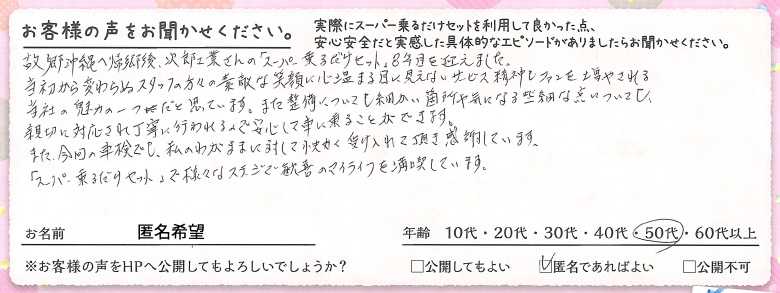 お客様の声をお聞かせください。
実際にスーパー乗るだけセットを利用して良かった点、
安心安全だと実感した具体的なエピソードがありましたらお聞かせください。
故郷沖縄へ帰郷後、次郎工業さんの「スーパー乗るだけセット」8年目を迎えました。
当初から変わらぬスタッフの方々の素敵な笑顔に心温まる目に見えないサービス精神もファンを増やされる
当社の魅力の一つだと思っています。また整備についても細かい箇所や気になる些細な点についても、
親切に対応され丁寧に行われるので安心して車に乗ることができます。
また、今回の車検でも、私のわがままに対して快く受け入れて頂き感謝しています。
「スーパー乗るだけセット」で様々なステージで歓喜のマイライフを満喫しています。
お名前 匿名希望
年齢 10代・20代・30代・40代・50代・60代以上
※お客様の声をHPへ公開してもよろしいでしょうか?
□公開してもよい ☑匿名であればよい □公開不可